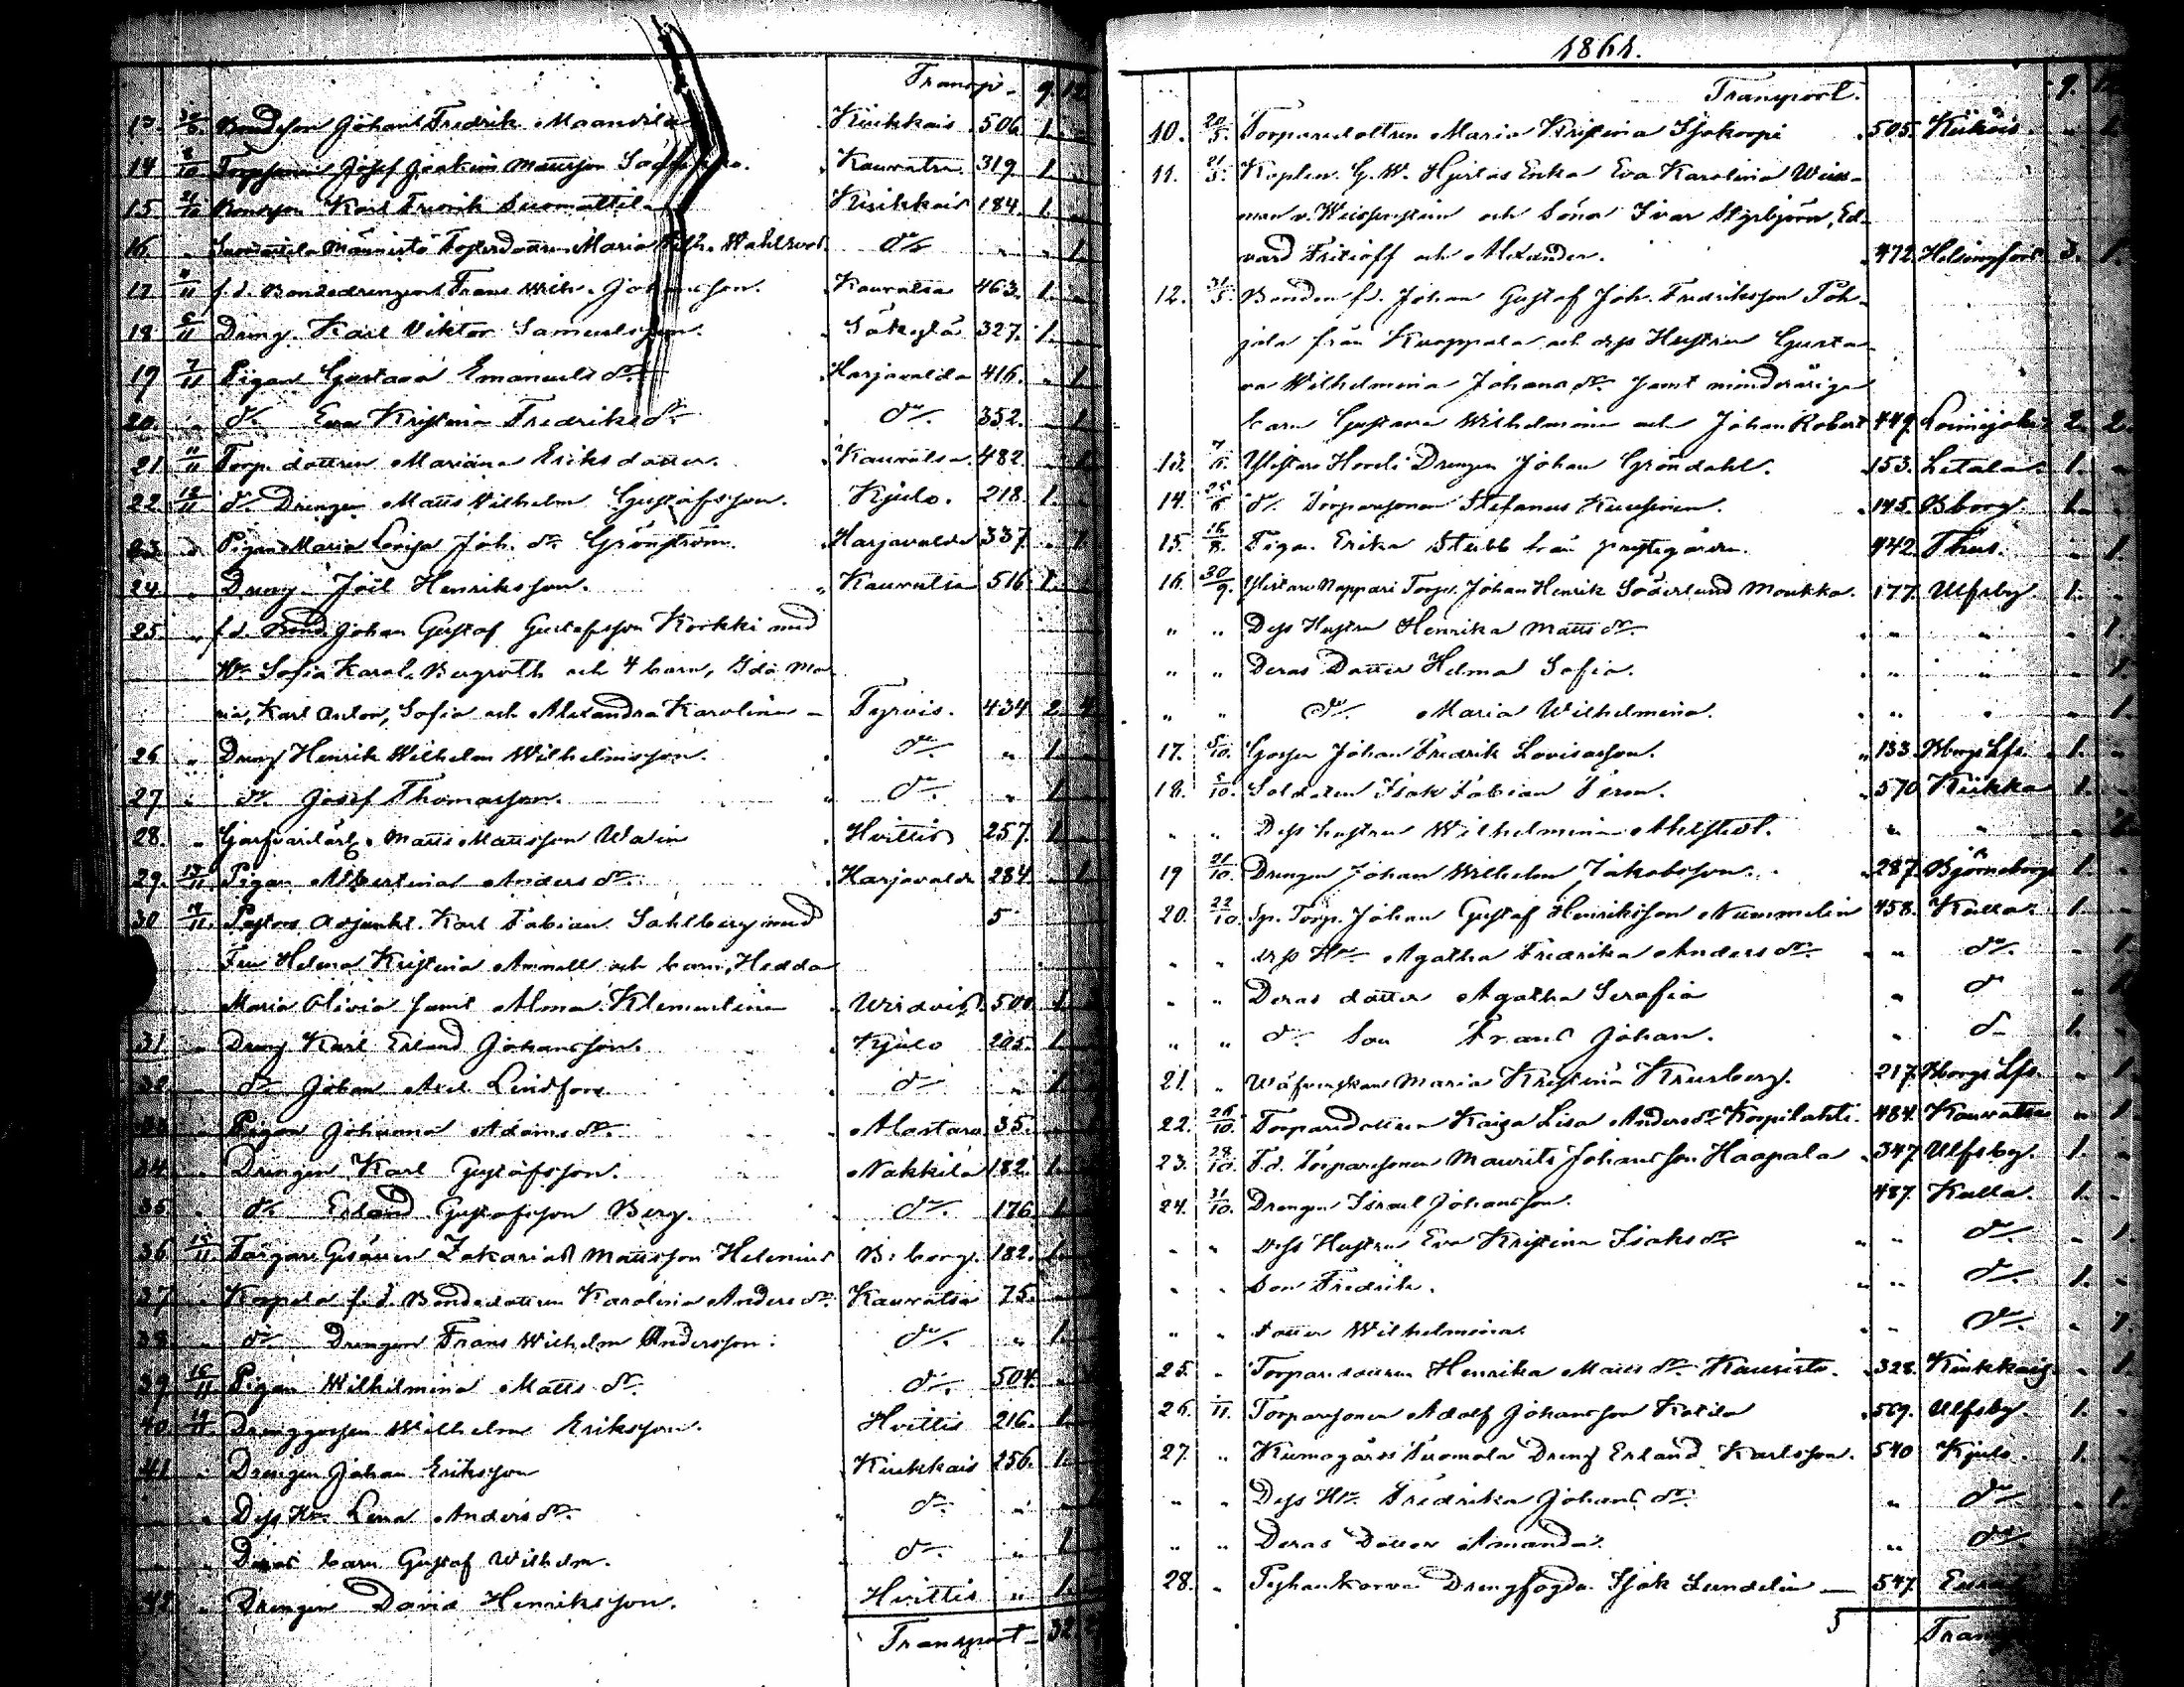 Transp. 9. 12
13. Bondeson Johan Fredrik Maanvila Kiukkais 506. 1.
14 8/10 Torpsonen Josef Joakim Mattsson Kauvatsa 319. 1.
15 Bondson Karl Fredrik Suomattila Kiukkais 184. 1.
16. " Suomattila Mannistö Torpsdottren Maria Wilh. Wahlroos do " 1.
17 4/11 f.d. Bondedrengen Frans Wilh. Johansson. Kauvatsa 463. 1.
18 6/11 Dreng Karl Viktor Samuelsson. Säkylä 327. 1.
19 7/11 Pigan Gustava Emanuels dr Harjavalda 416. " 1.
20. " do Eva Kristina Fredriks dr do 352. " 1
21 11/11 Torp. dottren Mariana Eriks dotter. Kauvatsa 482. 1
22. 12/11 do Drengen Matts Wilhelm Gustafsson. Kjulo. 218. 1.
23 " Pigan Maria Lovisa Joh. dr Grönström. Harjavalda 337. " 1.
24. " Dreng Joël Henriksson. Kauvatsa 516 1.
25 " f.d. Bond. Johan Gustaf Gustafsson Korkki med
Hu Sofia Karol. Bergroth och 4 barn, Ida Ma
ria, Karl Anton, Sofia och Alexandra Karolina Tyrvis. 434 2. 4
26 " Dreng Henrik Wilhelm Wilhelmsson. do " 1.
27 " do Josef Thomasson. do " 1.
28. " Garfvarilärl. Matts Mattsson Walin Hvittis 257. 1.
29. 13/11 Pigan Albertina Anders dr Harjavalda 284. 1
30 14/11 Pastors Adjunkt. Karl Fabian Sahlberg med 5
Fru Helena Kristina Amnell och barn, Hedda
Maria Olivia samt Alma Klementina 500 1.
31. " Dreng Karl Erland Johansson. Kjulo 205. 1.
32 " do Johan Axel Lindfors. do " 1.
33 " Pigan Johanna Adams dr Alastaro 35.
34. " Drengen Karl Gustafsson. Nakkila 182. 1.
35. " do Erland Gustafsson Berg. do 176. 1.
36 15/11 Färgare Gesällen Zakarias Mattsson Helenius B:borg. 182. 1.
37 " Korpela f.d. Bondedottren Karolina Anders dr Kauvatsa 75.
38. " do Drengen Frans Wilhelm Andersson. do " 1.
39 16/11 Pigan Wilhelmina Matts dr do 504.
40 Drenggossen Wilhelm Eriksson. Hvittis 216. 1.
41 " Drengen Johan Eriksson Kiukkais 256. 1.
" Dess Hu Lena Anders dr do "
" Deras barn Gustaf Wilhelm. do " 1
42 " Drengen David Henriksson. Hvittis " 1.
Transport 32
1861.
Transport. 9.
10. 20/5. Torparedottren Maria Kristina Isokorpi 505. Kiukais " 1.
11. 21/5. Kaplan G. W. Hjelts Enka Eva Karolina Weiss-
man v. Weissenstein och Söner Ivar Styrbjörn, Ed-
vard Fritioff och Alexander. 472. Helsingfors 3. 1.
12. 31/5. Bonden f.d. Johan Gustaf Joh. Fredriksson Poh-
jola från Kuoppala och dess Hustru Gusta-
va Wilhelmina Johans dr samt minderåriga
barn Gustava Wilhelmina och Johan Robert 449. Loimijoki 2. 2.
13. 7/6. Ylistaro Hoveli Drengen Johan Gröndahl. 153. Letala 1. "
14. 25/6 do Torparesonen Stefanus Kuusinen. 145. Bborg. 1. "
15. 16/8. Pigan Erika Stubb från prestegården. 442. Thus. " 1.
16. 30/9. Ylistaro Nappari Torps. Johan Henrik Söderlund Monkka. 177. Ulfsby. 1. "
" " Dess Hustru Henrika Matts dr " " " 1.
" " Deras Dotter Helma Sofia. " " " 1.
" " do Maria Wilhelmina. " " " 1.
17. 5/10. Gossen Johan Fredrik Lovisasson. 133. Bborgs Lfs. 1. "
18. 5/10. Soldaten Isak Fabian Feron. 570 Kiikka 1. "
" " Dess hustru Wilhelmina Ahlstedt. " " "
19 21/10. Drengen Johan Wilhelm Jakobsson. 287. Björneborg 1.
20. 22/10. Sp. Torp. Johan Gustaf Henriksson Nummelin 458. Kulla. 1. "
" " dess Hu Agatha Fredrika Anders dr " do " 1.
" " Deras dotter Agatha Serafia " do "
" " do Son Frans Johan. " do 1.
21. " Wäfverskan Maria Kristina Krusberg. 217. Bborgs Lfs. " 1.
22. 26/10. Torparedottren Kaisa Lisa Anders dr Korpilahti. 484. Kauvatsa " 1.
23. 28/10. F.d. Torparesonen Maurits Johansson Haapala 347. Ulfsby. 1. "
24. 31/10. Drengen Israel Johansson. 487. Kulla. 1. "
" " dess Hustru Eva Kristina Isaks dr " do " 1.
" " Son Fredrik. " do 1. "
" " dotter Wilhelmina. " do " 1.
25. " Torparedottren Henrika Matts dr Kauristo. 328. Kiukkais " 1.
26. Torparesonen Adolf Johansson Katila 569. Ulfsby. 1. "
27. " Kumogårds Tuomola Dreng Erland Karlsson. 540 Kjulo. 1. "
" " Dess Hu Fredrika Johans dr " do " 1.
" " Deras Dotter Amanda. " do
28. " Drengfogden Isak Lundelin 547.